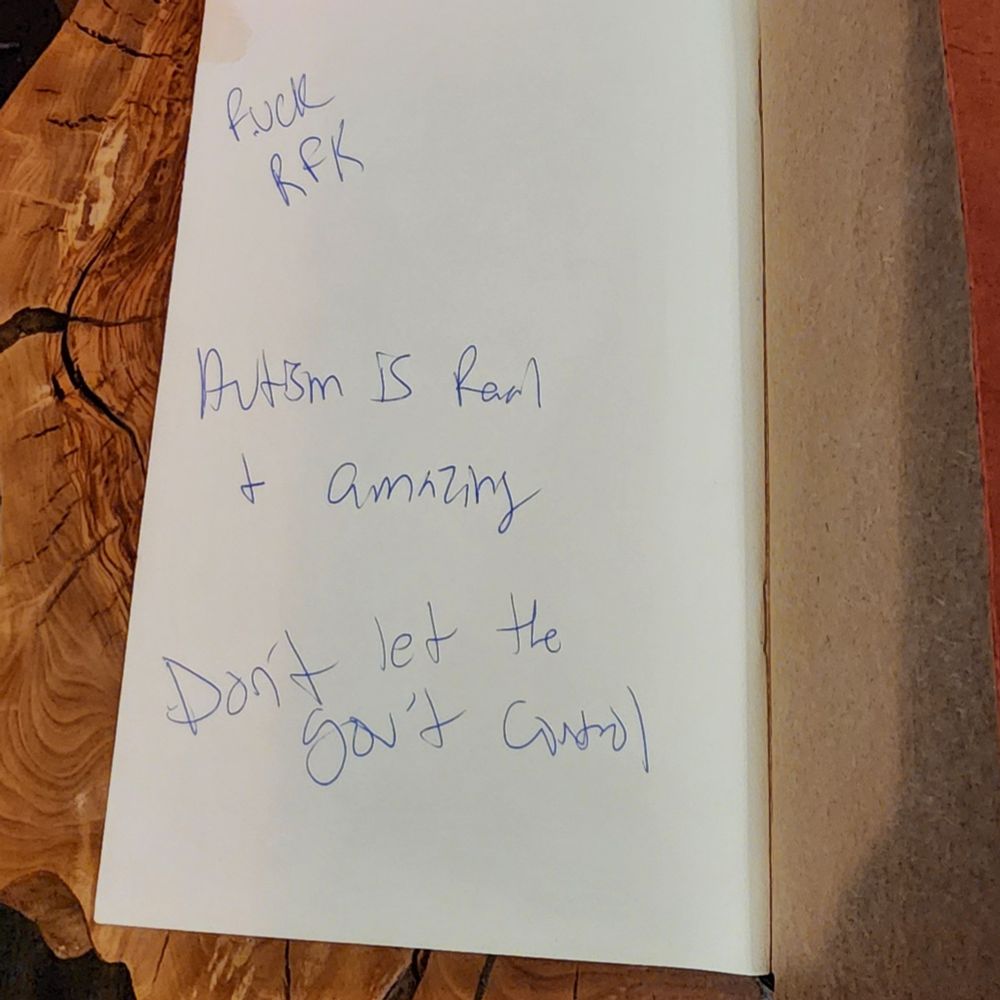 Fuck
RFK
Autism is Real
+ amazing
Don't let the
gov't Control